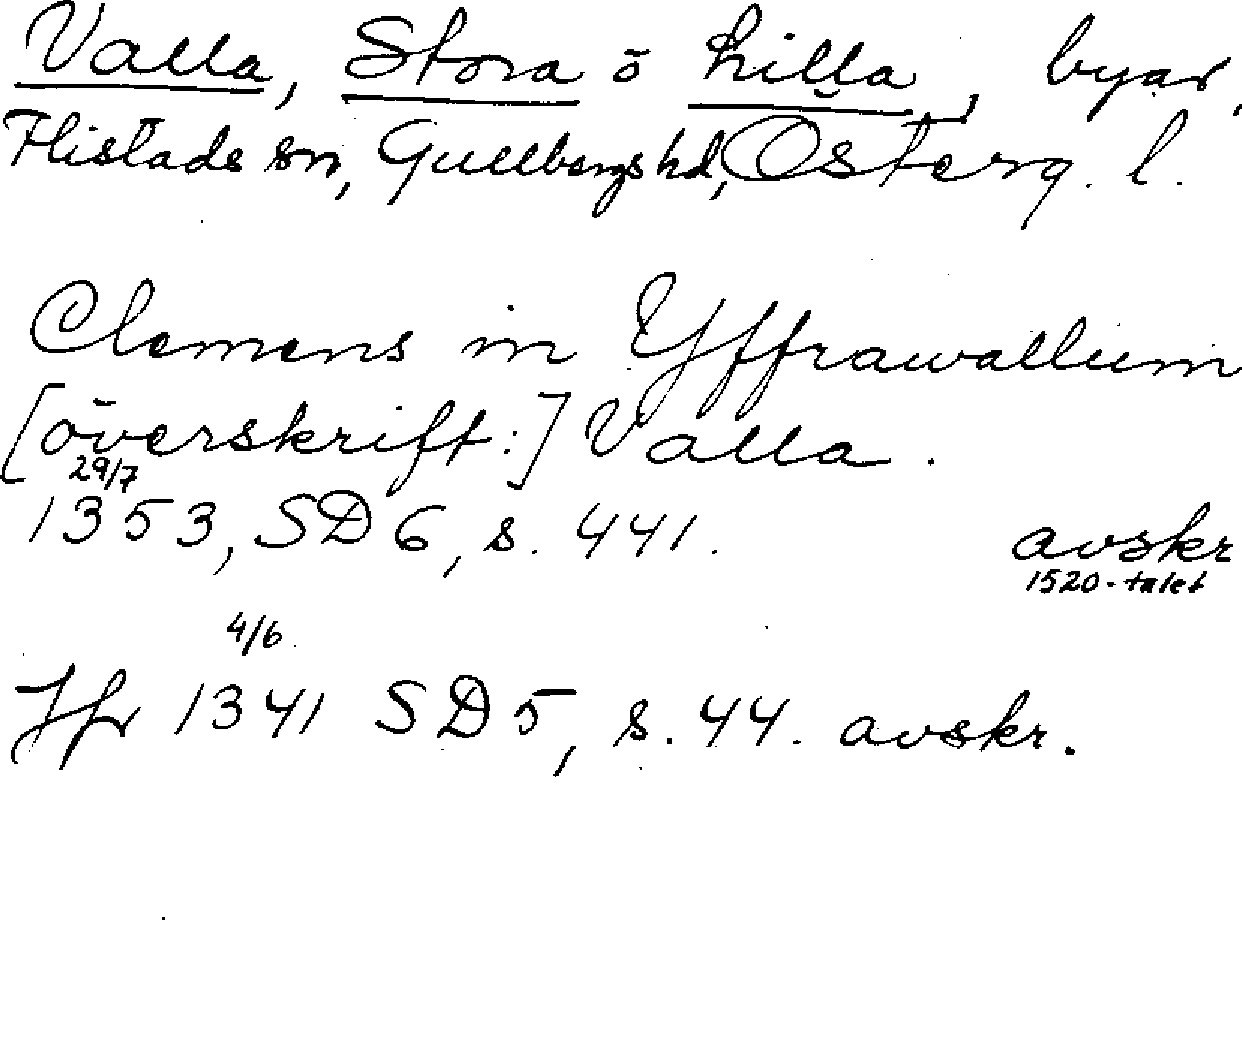 Valla, Stora o Lilla, byar,
Flistads sn, Gullbergs hd, Österg. l.
Clemens in Yffrawallum
[överskrift:] Valla.
29/7
1353, SD 6, s. 441. avskr
1520-talet
4/6
Jfr 1341 SD 5, s. 44. avskr.